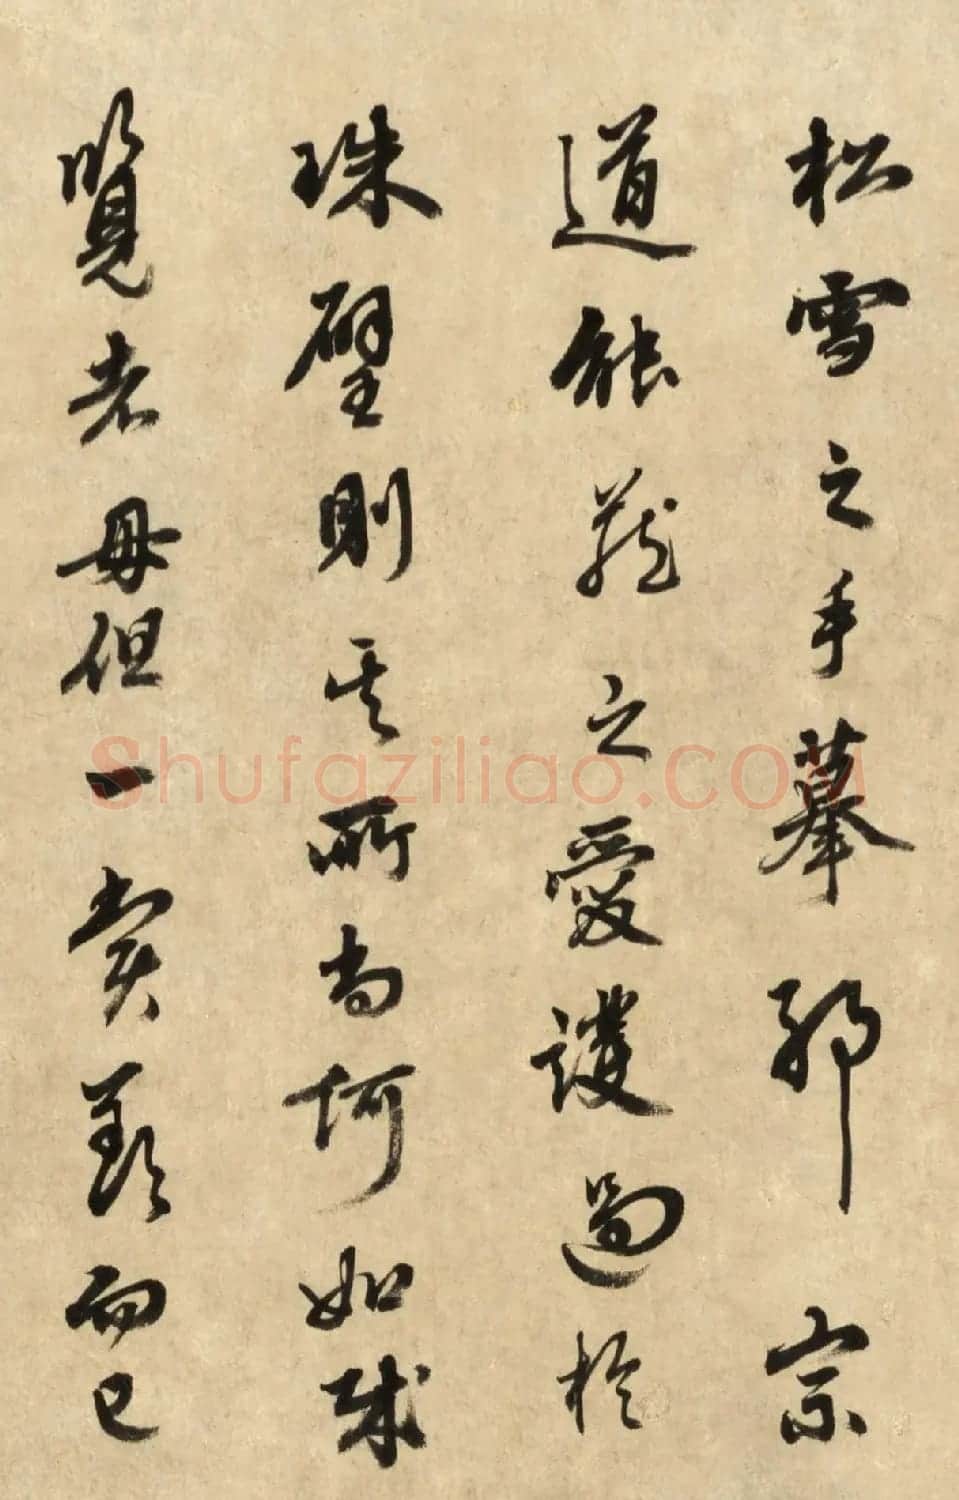 松雪之手摹邪宗
道能藏之愛護過於
珠璧則其所尚何如哉
覽者毋但一賞歎而已
Shufaziliao.COM